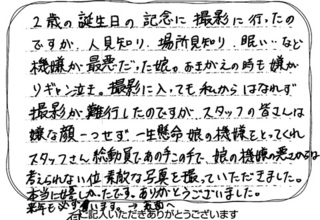 2歳の誕生日の記念に撮影に行ったの
ですが、人見知り、場所見知り、眠い…など
機嫌が最悪だった娘。おきがえの時も嫌が
りギャン泣き。撮影に入っても私からはなれず
撮影が難行したのですが、スタッフの皆さんは
嫌な顔一つせず、一生懸命娘の機嫌をとってくれ
スタッフさん総動員であの手この手で、娘の機嫌の悪さからは
考えられない位素敵な写真を撮っていただきました。
本当に嬉しかったです。ありがとうございました。
来年も必ず 着います。→右面へ
ご記入いただきありがとうございます